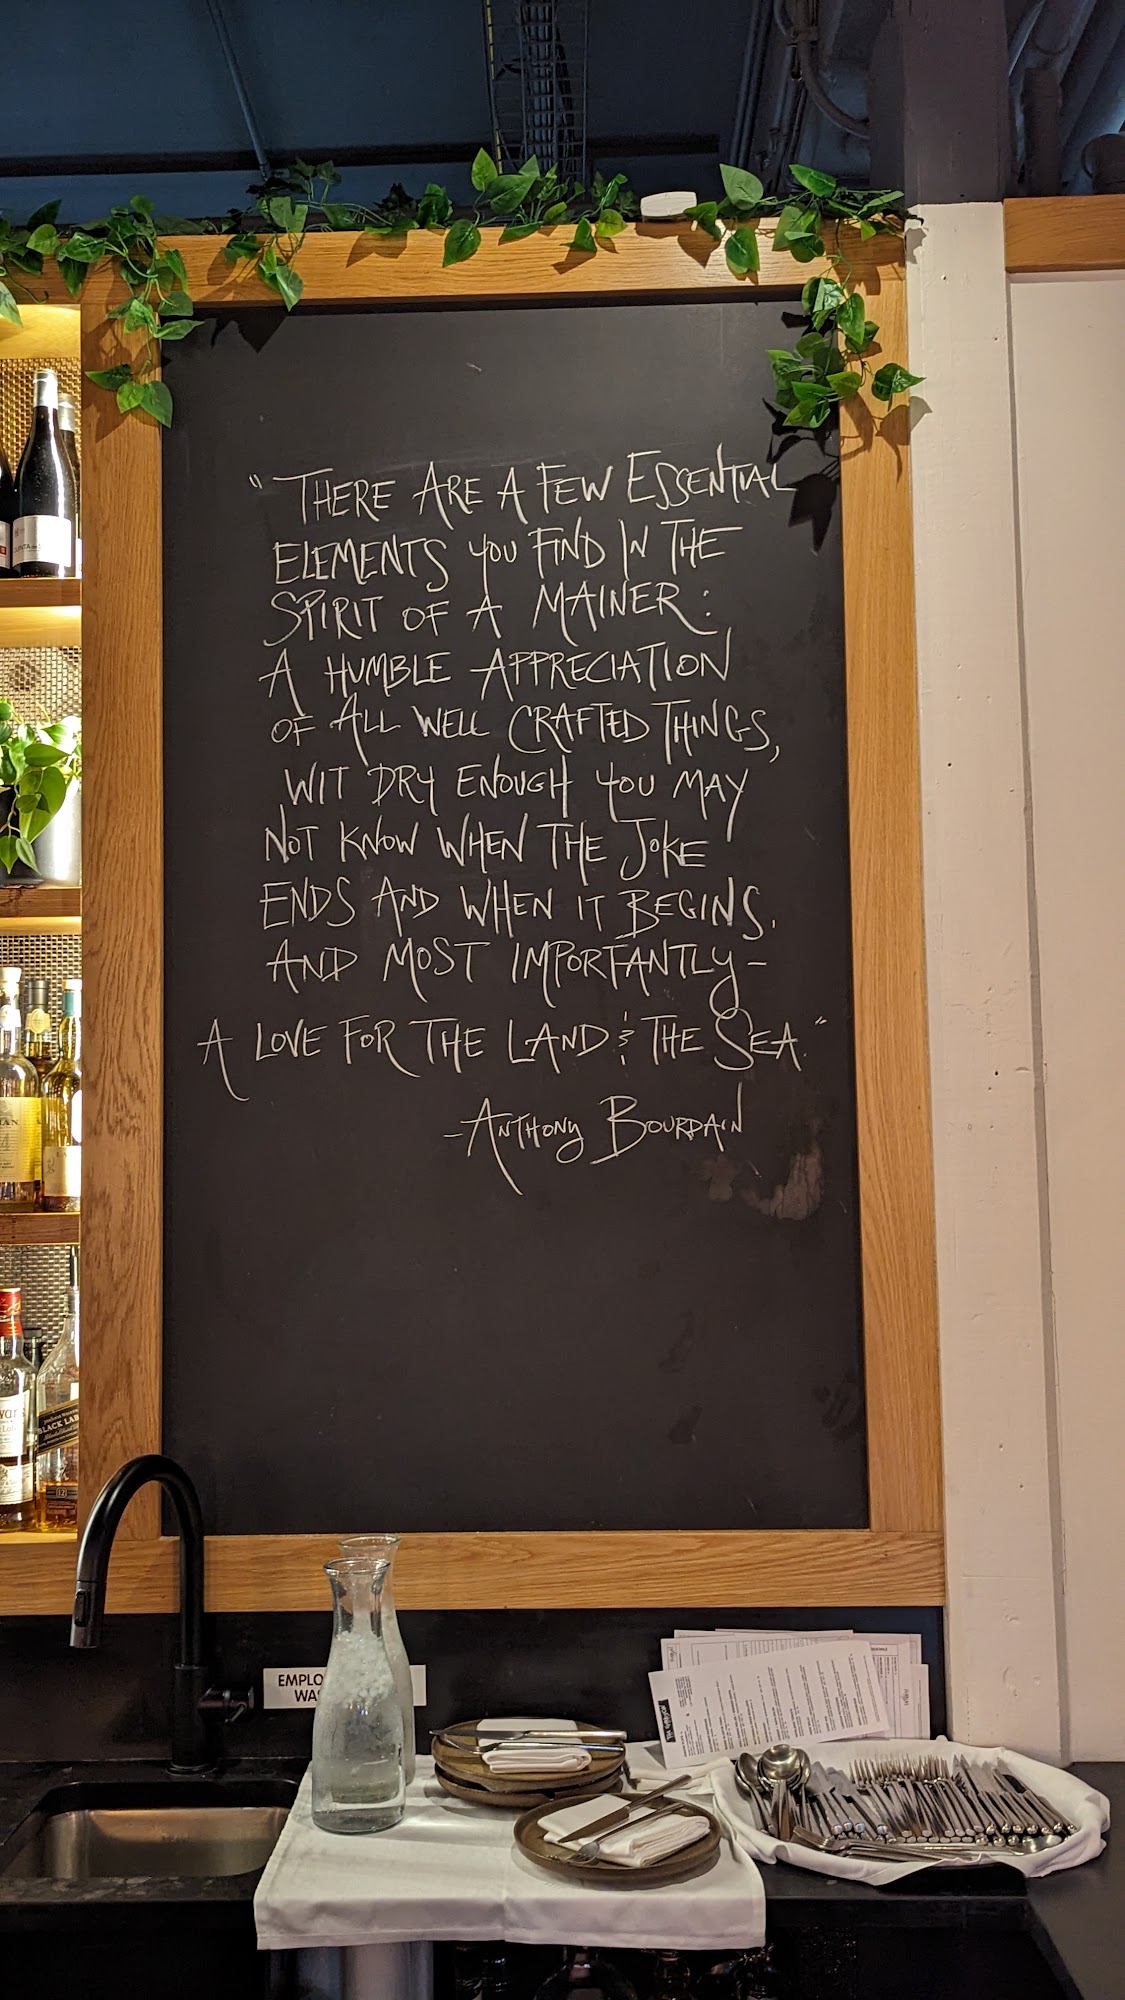 “ THERE ARE A FEW ESSENTIAL
ELEMENTS YOU FIND IN THE
SPIRIT OF A MAINER:
A HUMBLE APPRECIATION
OF ALL WELL CRAFTED THINGS,
WIT DRY ENOUGH YOU MAY
NOT KNOW WHEN THE JOKE
ENDS AND WHEN IT BEGINS.
AND MOST IMPORTANTLY-
A LOVE FOR THE LAND & THE SEA.”
-ANTHONY BOURDAIN
BLACK LAB
12
EMPLO
WA